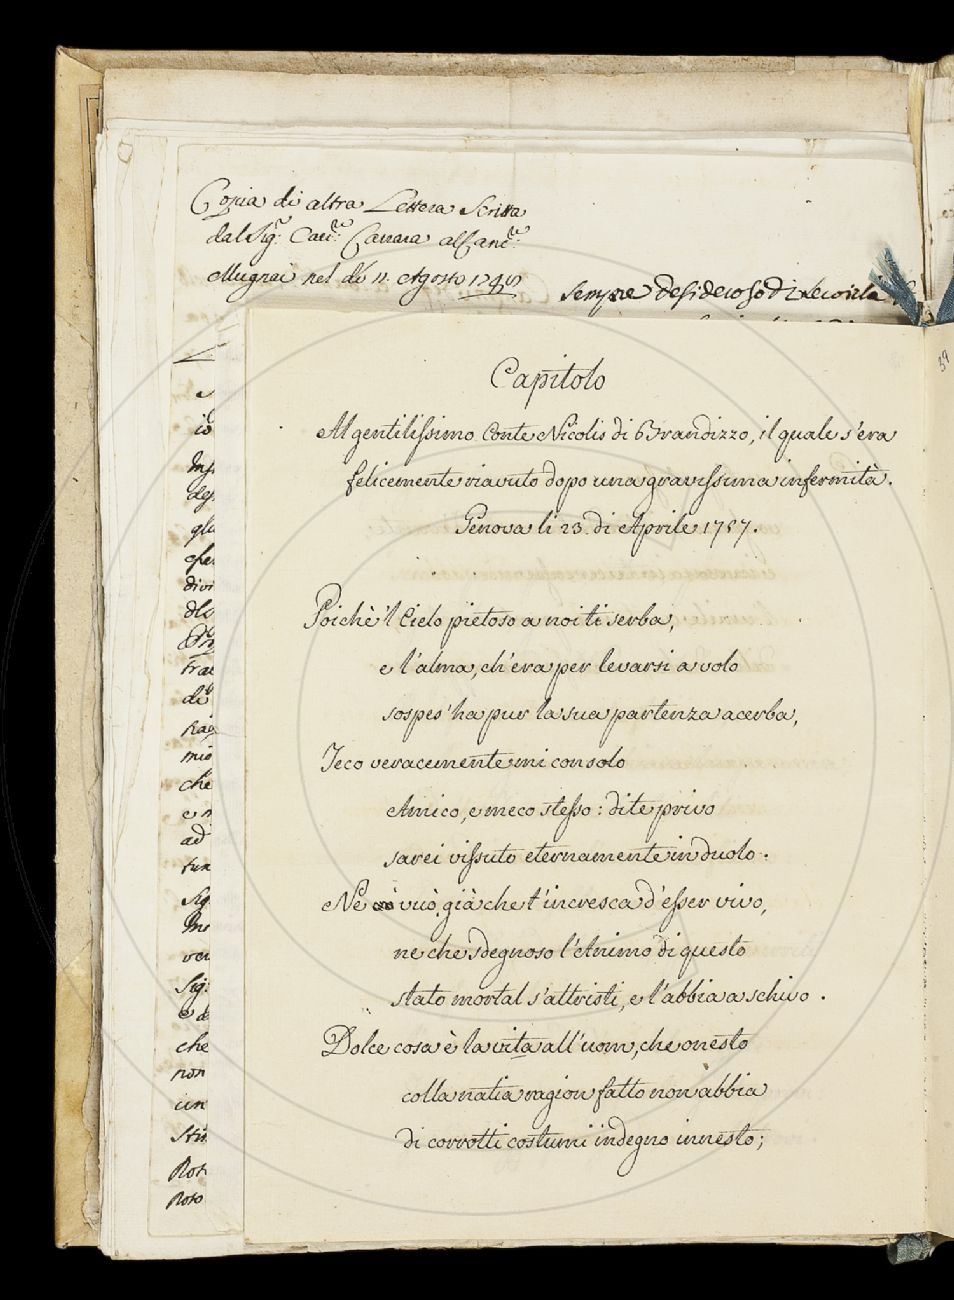 Copia di altra Lettera Scritta
dal Sig.r Cav.re Carrara al Canc.re
Mugnai nel dì 11. Agosto
sempre desideroso di
39
Capitolo
Al gentilissimo Conte Nicolis di Brandizzo, il quale s'era
felicemente riavuto dopo una gravissima infermità.
Genova li 23. di Aprile 1757.
Poichè 'l Cielo pietoso a noi ti serba,
e l'alma, ch'era per levarsi a volo
sospes' ha pur la sua partenza acerba,
Teco veracemente mi consolo
Amico, e meco stesso: di te privo
sarei vissuto eternamente in duolo.
Ne vuò già che t'incresca d'esser vivo,
ne che sdegnoso l'Animo di questo
stato mortal s'attristi, e l'abbia a schivo.
Dolce cosa è la vita all'uom, che onesto
colla natia ragion fatto non abbia
di corrotti costumi indegno innesto;
io
che
e n
ad
Sig:
che
non